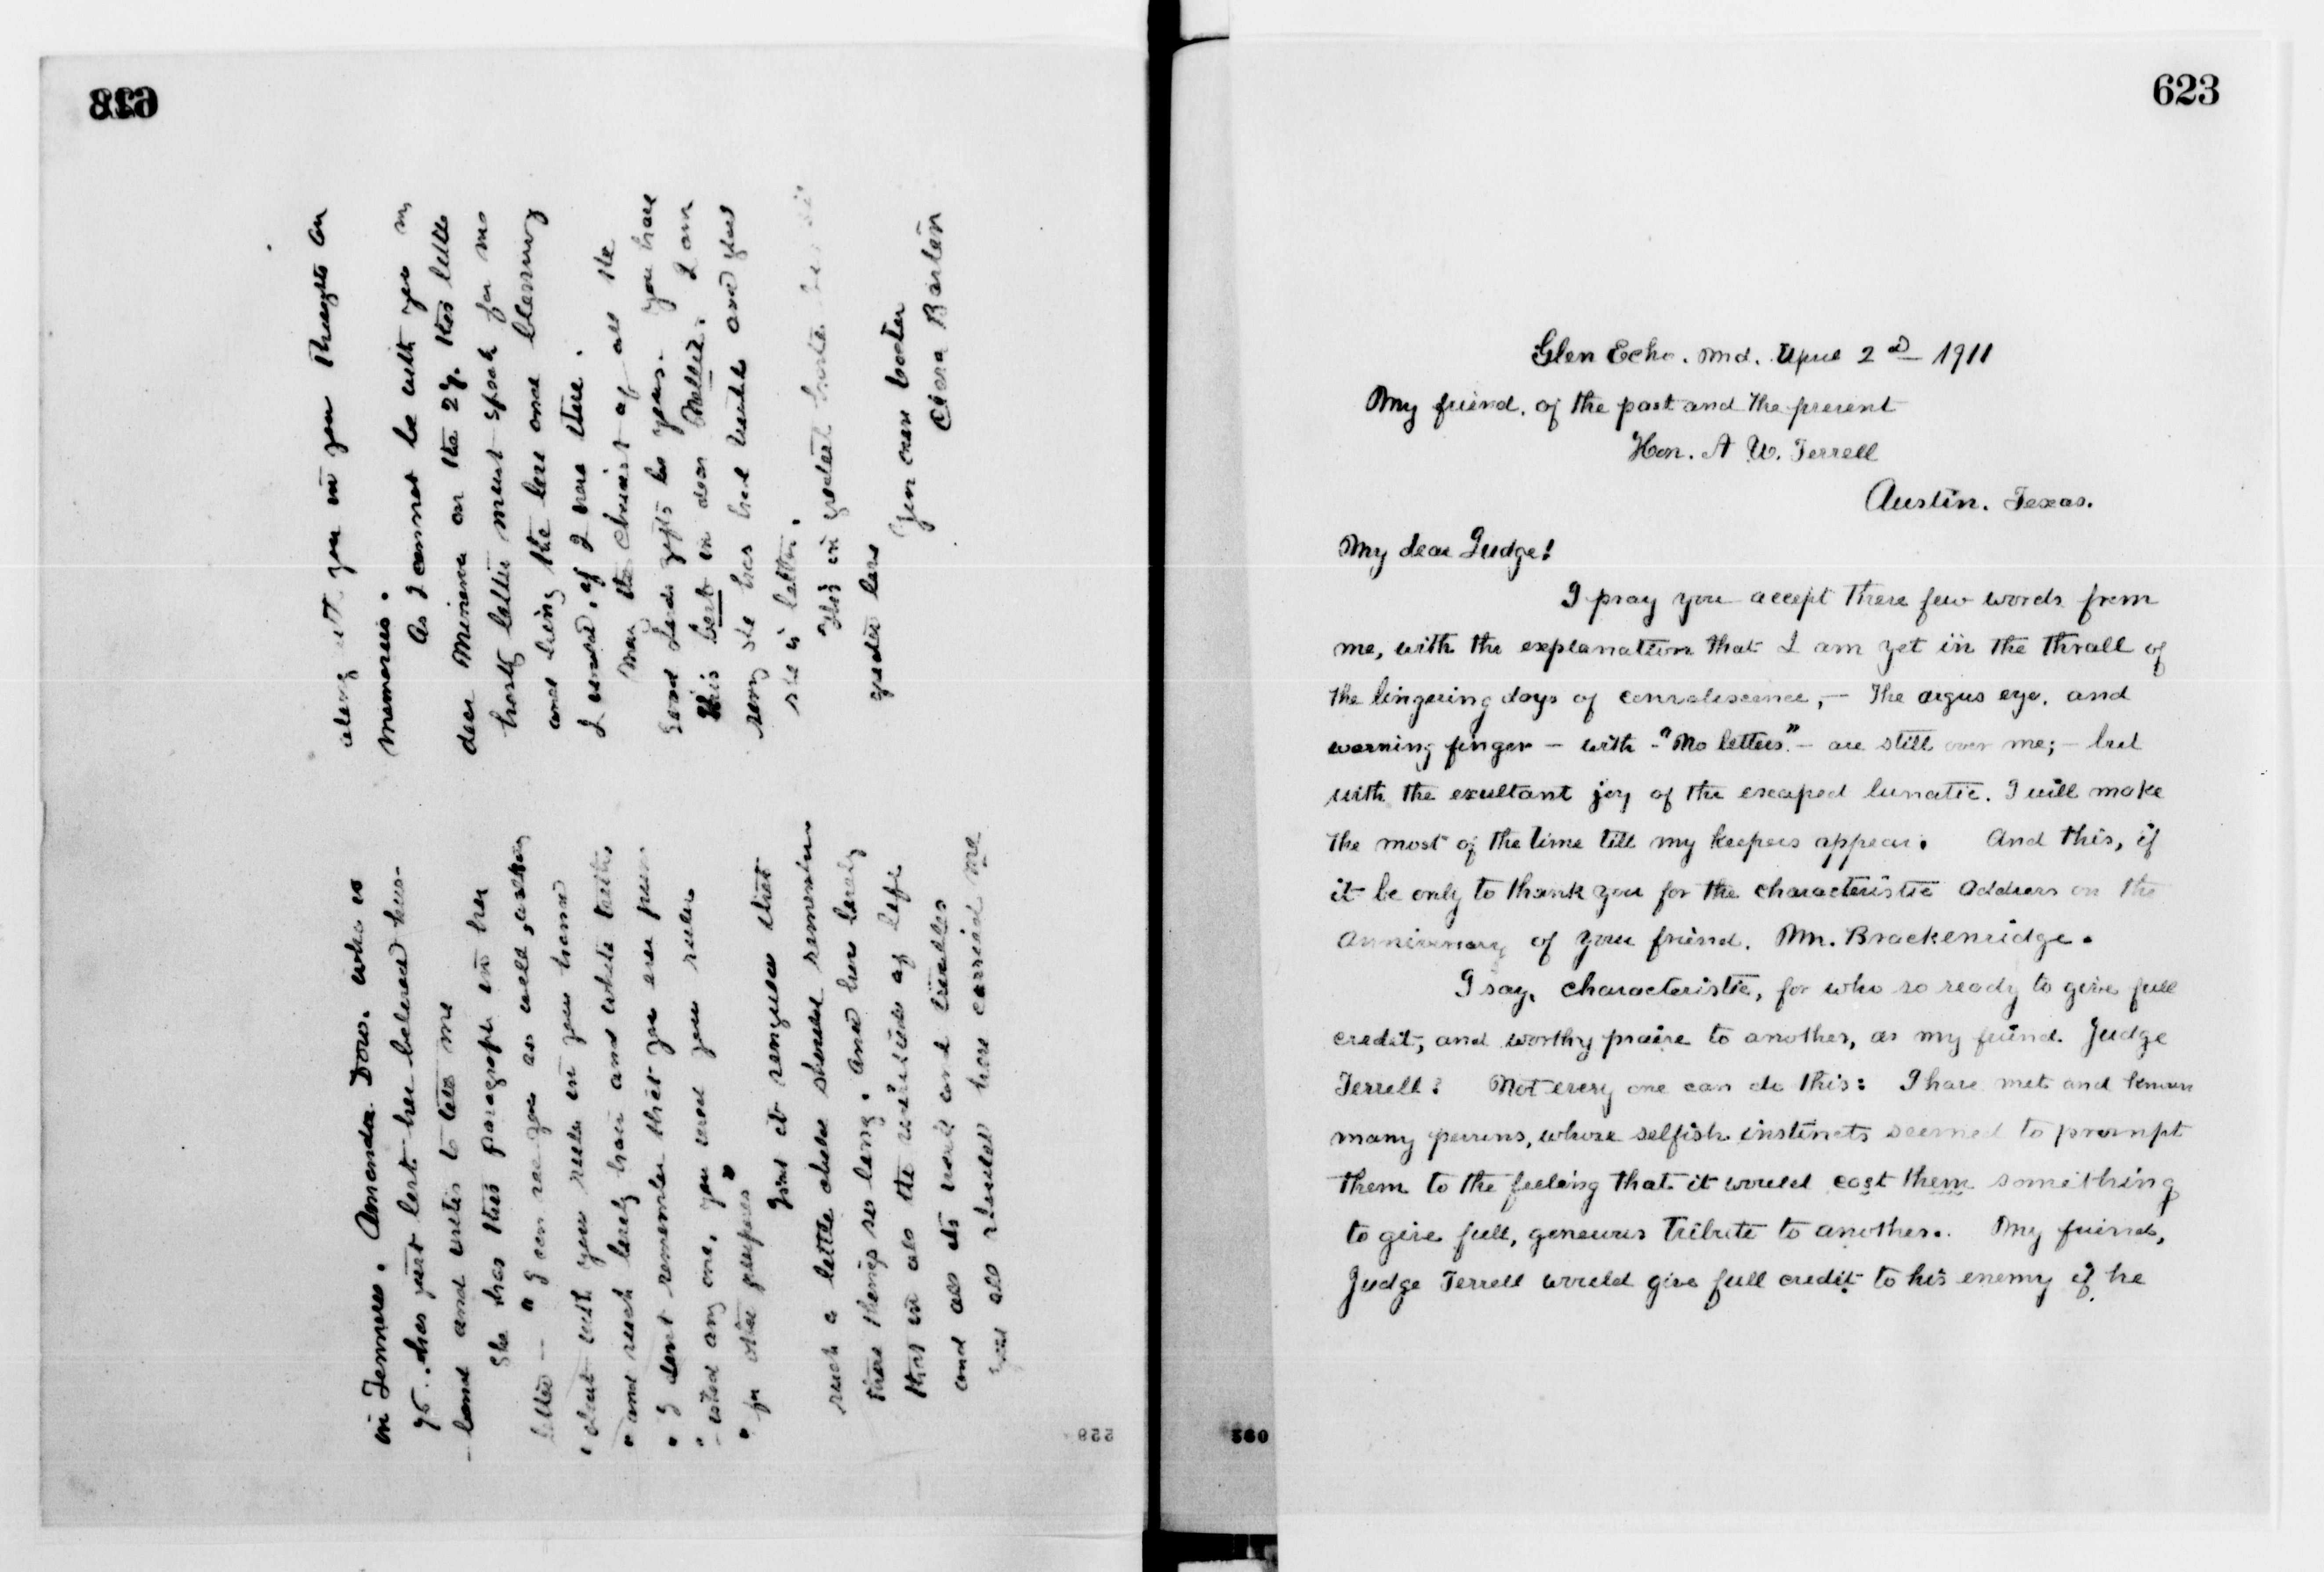 in Jennever. Amanda Dow. who is
95.. has just lost her beloved hus-
-band and writes to tell me
She has this paragraph in her
letter -- "I can see you as well, asking
" about with your ruler in your hand
" and such lovely hair and white teeth,
" I dont remember that you ever pun-
"-ished any one, you used your ruler
" for other purposes"
Just it singular that
such a little child should remember
these things so long. And how lovely
that in all the vicissitudes of life
and all its work and troubles
you all should have carried me
along with you in your thoughts and
memories.
As I cannot be with you my
dear Minerva on the 27. this little
hasty letter must speak for me
and bring the love and blessing
I would, if I were there.
May the choicest of all the
Good Lords gifts be yours. You have
this best in dear Nellie. I am
sorry she has had trouble and glad
she is better.
This in greatest haste but in
greater love
Yours ever
Clara Barton
623
Glen Echo. Md. April 2d 1911
My friend, of the past and the present
Hon. A W. Terrell
Austin. Texas.
My dear Judge!
I pray you accept these few words from
me, with the explanation that I am yet in the thrall of
the lingering days of convalescence, — The argus eye, and
warning finger — with -"No letters"- are still over me; — but
with the exultant joy of the escaped lunatic. I will make
the most of the time till my keepers appear. And this, if
it be only to thank you for the characteristic address on the
anniversary of your friend. Mr. Brackenridge.
I say, characteristic, for who so ready to give full
credit, and worthy praise to another, as my friend. Judge
Terrell? Not every one can do this: I have met and known
many persons, whose selfish instincts seemed to prompt
them to the feeling that it would cost them something
to give full, generous tribute to another. My friend,
Judge Terrell would give full credit to his enemy if he